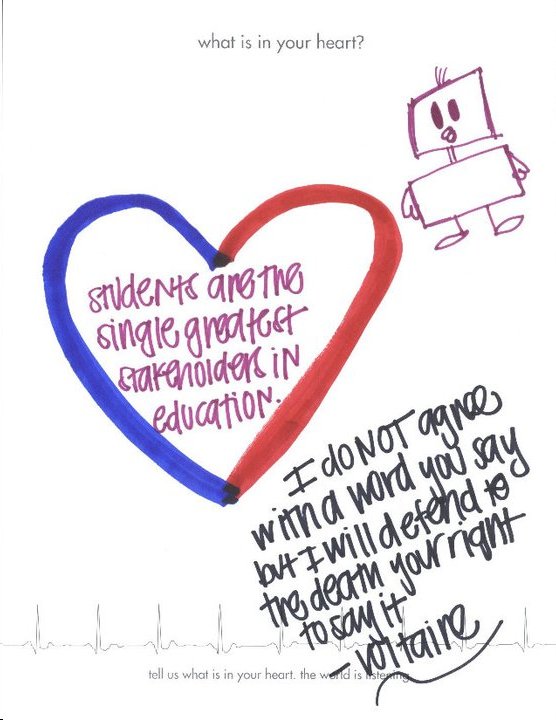 what is in your heart?
students are the
single greatest
stakeholders in
education.
I do NOT agree
with a word you say
but I will defend to
the death your right
to say it
- voltaire
tell us what is in your heart. the world is listening